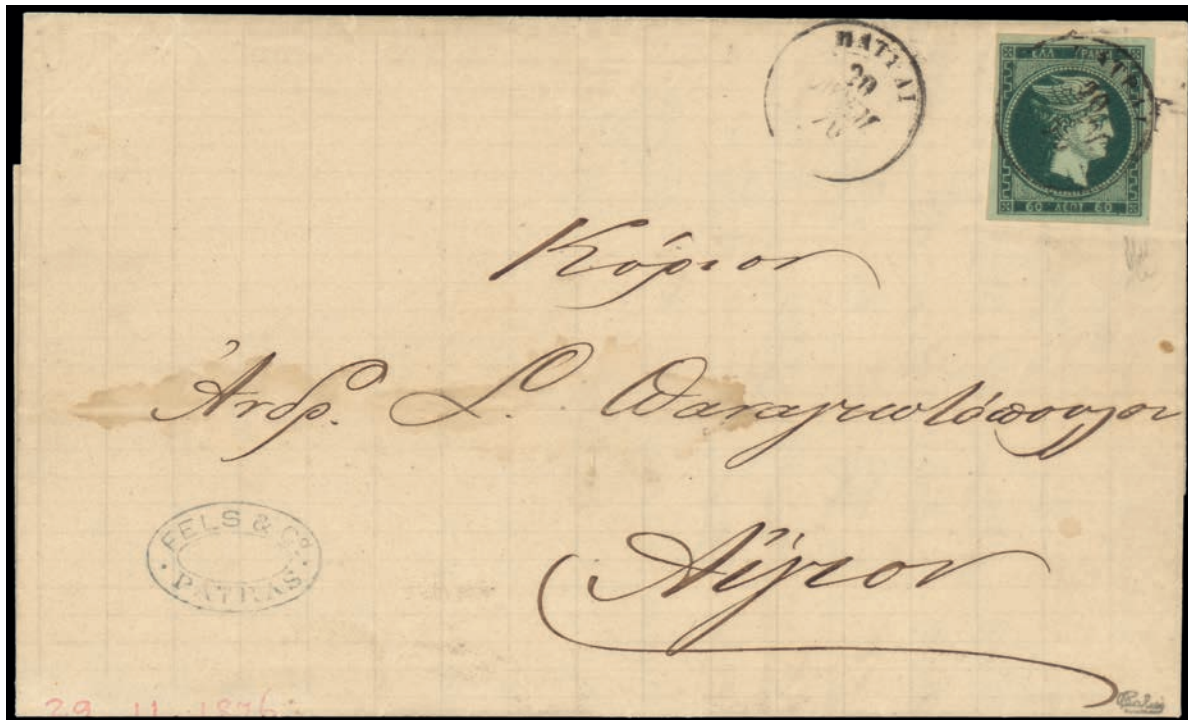 ΠΑΤΡΑΙ
20
ΝΟΕΜ
76
ΕΛΛ. ΓΡΑΜΜ
ΠΑΤΡΑΙ
20
60 ΛΕΠΤ 60
Κύριον
Ἀνδρ. Σ. Παναγιωτόπουλον
Αἴγιον
FELS & Cº
PATRAS
29 11 1876